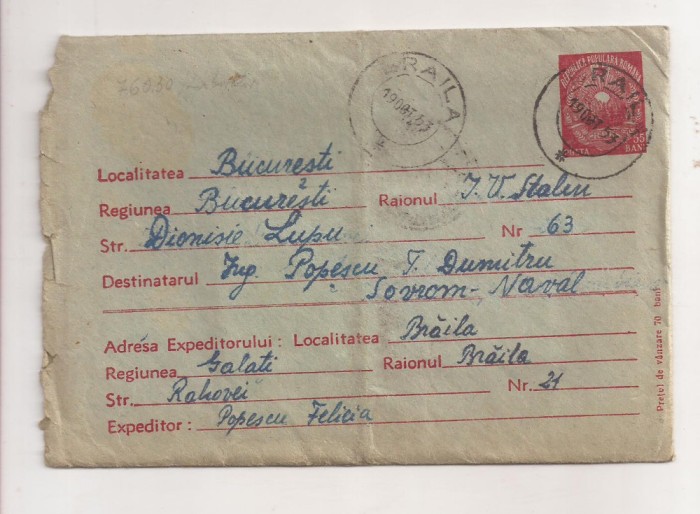 BRAILA
19 OCT. 53
REPUBLICA POPULARA ROMANA
55
BANI
POSTA
BRAILA
19 OCT. 53
Localitatea Bucuresti
Regiunea București Raionul I. V. Stalin
Str. Dionisie Lupu Nr 63
Destinatarul Ing. Popescu T. Dumitru
Sovrom-Naval
Adresa Expeditorului: Localitatea Brăila
Regiunea Galati Raionul Brăila
Str. Rahovei Nr. 21
Expeditor: Popescu Felicia
Prețul de vânzare 70 bani